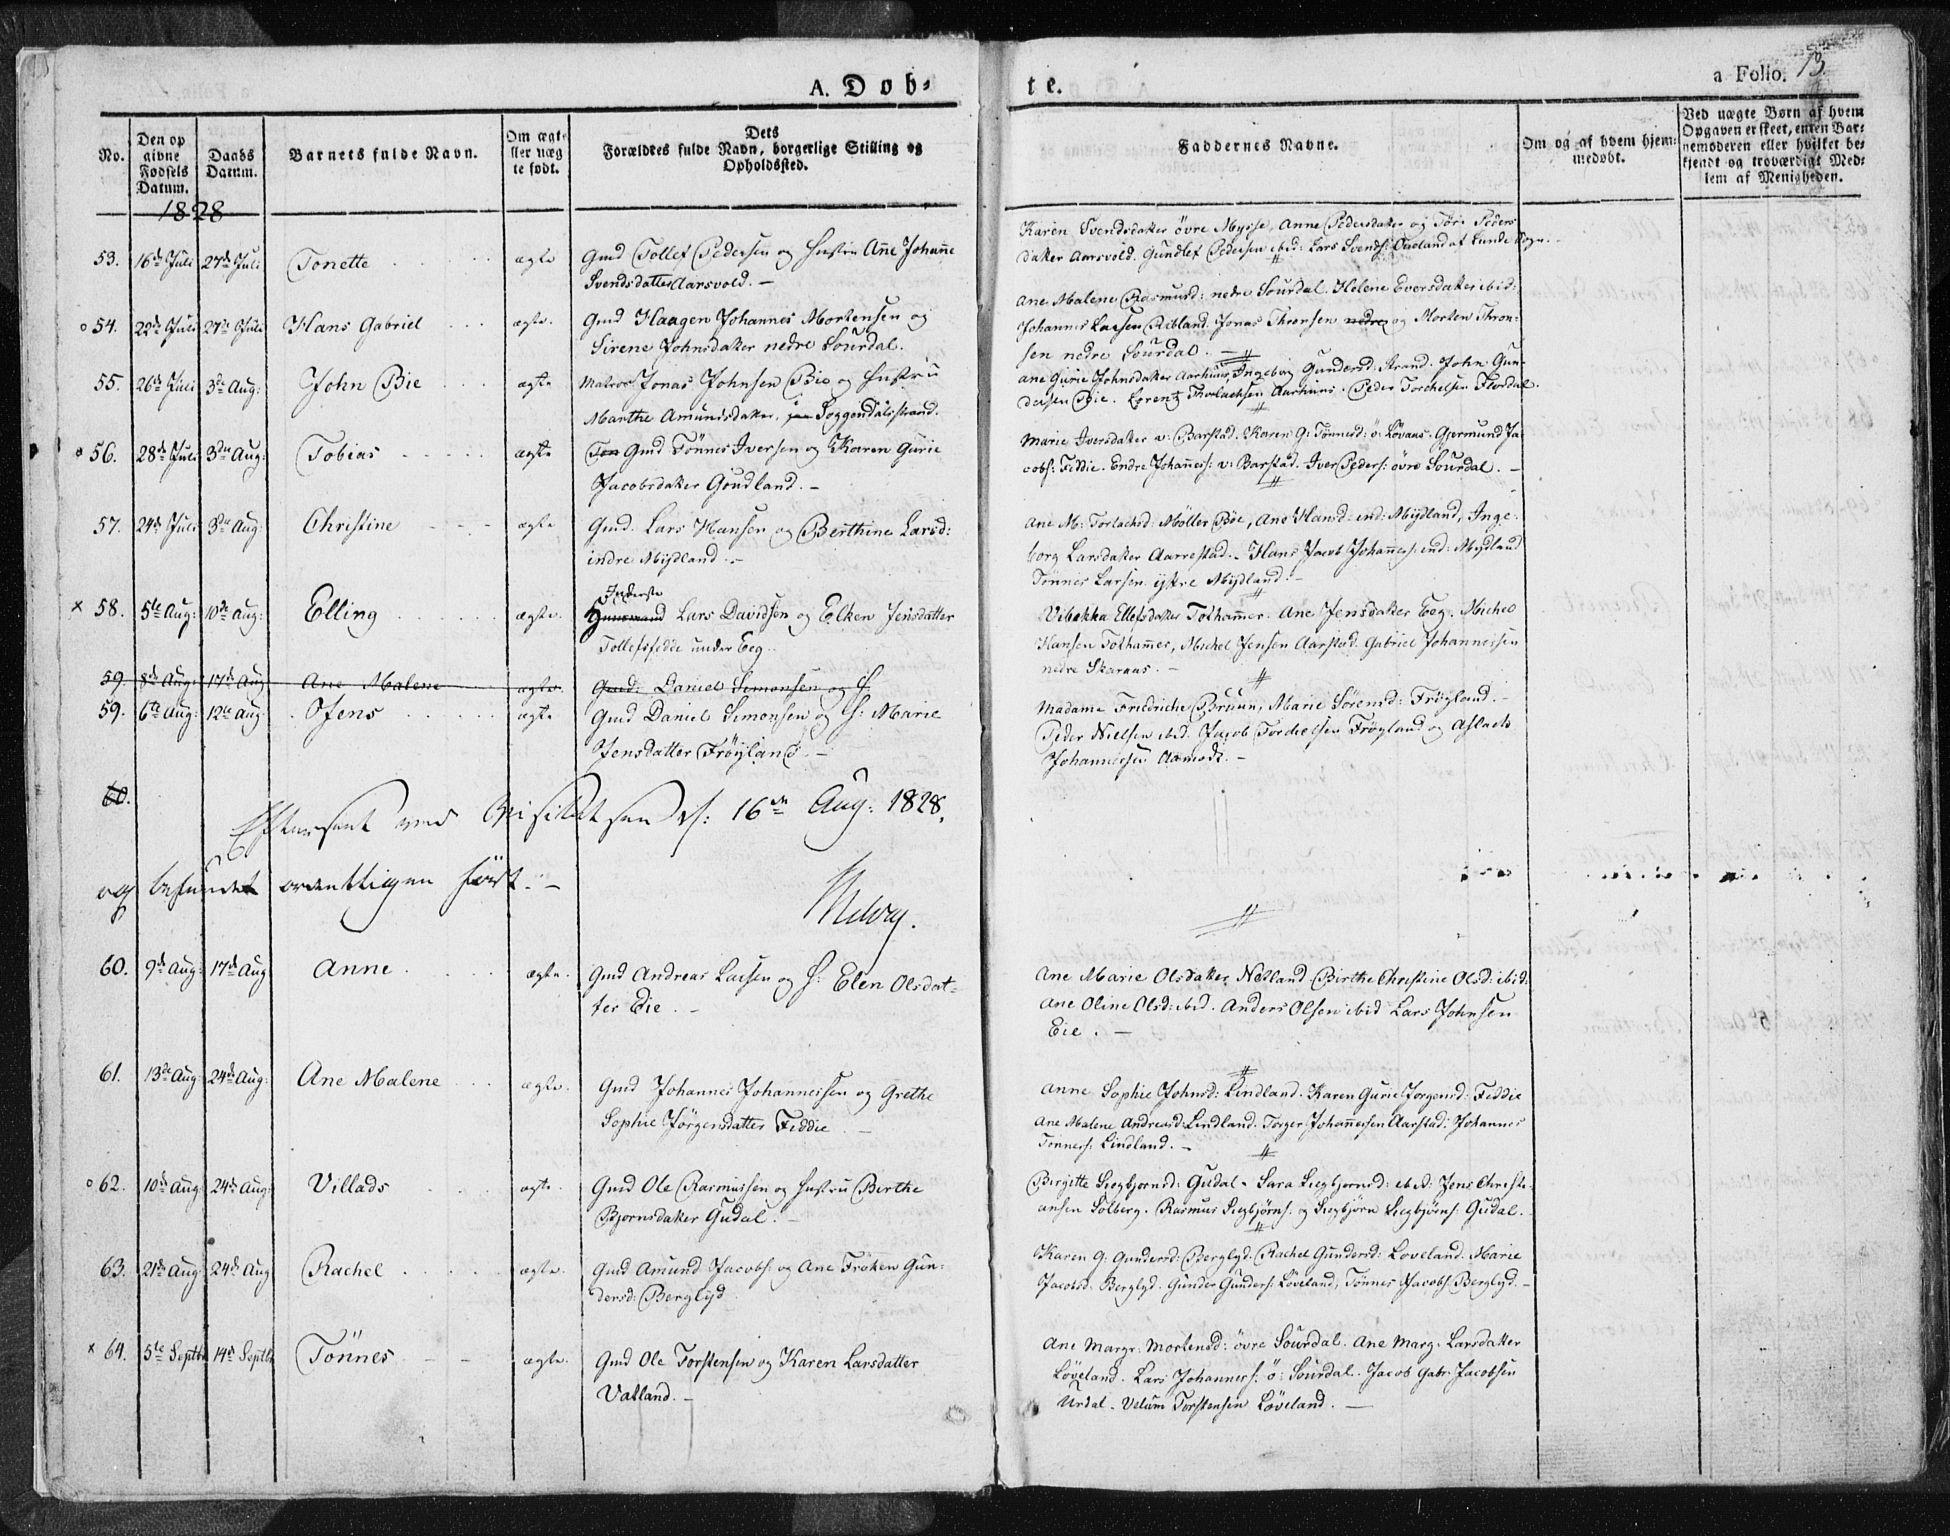 A. Döb-
te.
a Folio. 13.
No.
Den op
givne
Fødsels
Datum.
Daabs
Datum.
Barnets fulde Navn.
Om ægte
ller uæg
te født.
Dets
Forældres fulde Navn, borgerlige Stilling og
Opholdssted.
Faddernes Navne.
Om og af hvem hjem-
medøbt.
Ved uægte Børn af hvem
Opgaven er skeet, enten Bar-
nemoderen eller hvilket be-
kjendt og troværdigt Med-
lem af Menigheden.
1828
53. 16de Juli 27de Juli Tonette ægte Gmd Tollef Pedersen og Hustru Ane Johanne
Svendsdatter Aarsvold. –
Karen Svendsdatter øvre Mysse, Anne Pedersdatter og Tøri Peders
datter Aarsvold. Gundlef Pedersen ibid: Lars Svends: Oueland af Lunde Sogn.
54. 22de Juli 27de Juli Hans Gabriel ægte. Gmd Haagen Johannes Mortensen og
Sirene Johnsdatter nedre Sourdal.
Ane Malene Rasmusd: nedre Sourdal. Helene Eversdatter ibid:
Johannes Larsen Ribland. Jonas Thronsen nedre og Morten Thron-
sen nedre Sourdal. –
55. 26de Juli 3de Aug: John Bie ægte Matros Jonas Johnsen Bie og Hustru
Marthe Amundsdatter, Soggendalsstrand.
Ane Gurie Johnsdatter Aarhuus, Ingeborg Gundersd: Strand. John Gun-
dersen Bie. Lorentz Thorlachsen Aarhuus. Peder Torchelsen Flordal.
56. 28de Juli 3de Aug: Tobias ægte Ton Gmd Tönnes Iversen og Karen Gurie
Jacobsdatter Goudland. –
Marie Iversdatter v: Barstad. Karen G: Tönnesd: ö: Lövaas. Gjermund Ja-
cobs: Feddie. Endre Johannes: v: Barstad. Iver Peders: övre Sourdal. –
57. 24de Juli 3de Aug: Christine ægte Gmd. Lars Hansen og Berthine Larsd:
indre Mydland. –
Ane M: Torlachsd: Möller Böe, Ane Hansd: ind: Mydland, Inge-
borg Larsdatter Aarrestad. Hans Jacob Johannes: ind: Mydland
Tönnes Larsen ytre Mydland. –
58. 5te Aug: 10de Aug: Elling ægte. Inderste
Huusmand Lars Davidsen og Elken Jensdatter
Tollefsfedde under Eeg.
Vibekka Ellefsdatter Tothammer. Ane Jensdatter Eeg. Michel
Hansen Tothammer, Michel Jensen Aarstad. Gabriel Johannessen
nedre Skaraas. –
59. 8de Aug: 17de Aug Ane Malene ægte. Gmd: Daniel Simonsen og H.
59. 6te Aug: 12te Aug. Jens ægte Gmd Daniel Simonsen og H: Marie
Jensdatter Fröyland. –
Madame Fredriche Bruun, Marie Sörensd: Fröyland. –
Peder Nielsen ibid. Jacob Torchelsen Fröyland og Aslach
Johannessen Aamodt. –
60.
Efterseet ved Visitatsen d: 16de Aug: 1828,
og befundet ordentligen ført. –
60. 9de Aug: 17de Aug Anne ægte. Gmd Andreas Larsen og H: Elen Olsdat-
ter Eie. –
Ane Marie Olsdatter Netland Birthe Christine Olsd: ibid:
Ane Oline Olsd: ibid. Anders Olsen ibid Lars Johnsen
Eie. –
61. 13de Aug: 24de Aug: Ane Malene ægte. Gmd Johannes Johannessen og Grethe
Sophie Jörgensdatter Feddie. –
Anne Sophie Johnsd: Lindland. Karen Gurie Jorgensd: Feddie
Ane Malene Andreasd: Lindland. Torger Johannesen Aarstad. Johannes
Tönness: Lindland. –
62. 10de Aug: 24de Aug: Villads ægte. Gmd Ole Rasmussen og Hustru Birthe
Bjornsdatter Gudal. –
Birgitte Siegbjornsd: Gudal. Sara Siegbjornsd: ibid: Jens Christi-
ansen Solberg. Rasmus Siegbjörns: og Siegbjörn Siegbjörns: Gudal.
63. 21de Aug 24de Aug Rachel ægte. Gmd Amund Jacobs: og Ane Fröken Gun-
dersd: Berglyd
Karen G. Gundersd: Berglyd. Rachel Gundersd: Loveland. Marie
Jacobsd: Berglyd. Gunder Gunders: Löveland, Tönnes Jacobs: Berglyd. –
64. 5te Septbr 14de Septbr Tönnes ægte. Gmd Ole Torstensen og Karen Larsdatter
Vatland. –
Ane Margr: Mortensd: övre Sourdal. Ane Marg: Larsdatter
Löveland. Lars Johannes: ö: Sourdal. Jacob Gabr: Jacobsen
Urdal. Velum Torstensen Löveland. –